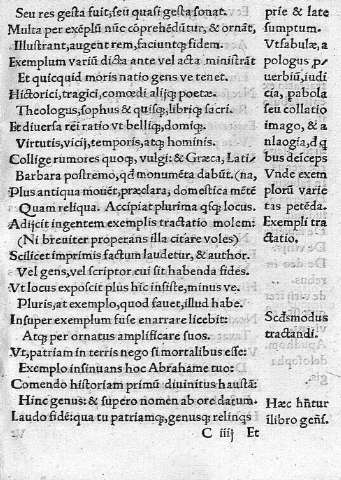 Seu res gesta fuit, seu quasi gesta sonat.
Multa per exẽplũ nũc cõprehẽdũtur, & ornãt,
Illustrant, augent rem, faciuntq; fidem.
Exemplum variũ dicta ante vel acta ministrãt
Et quicquid moris natio gens ve tenet.
Historici, tragici, comœdi alijq; poetæ.
Theologus, sophus & quisq;, libriq; sacri.
Et diuersa rẽi ratio vt belliq;, domiq;.
Virtutis, vicij, temporis, atq; hominis.
Collige rumores quoq;, vulgi: & Græca, Lati⸗
Barbara postremo, qd monumẽta dabũt. (na,
Plus antiqua mouẽt, præclara, domestica mẽtẽ
Quam reliqua. Accipiat plurima qsq; locus.
Adijcit ingentem exemplis tractatio molem:
(Ni breuiter properans illa citare voles)
Scilicet imprimis factum laudetur, & author.
Vel gens, vel scriptor cui sit habenda fides.
Vt locus exposcit plus hîc insiste, minus ve.
Pluris, at exemplo, quod fauet, illud habe.
Insuper exemplum fuse enarrare licebit:
Atq; per ornatus amplificare suos.
Vt, patriam in terris nego si mortalibus esse:
Exemplo insinuans hoc Abrahame tuo:
Comendo historiam primũ diuinitus haustã:
Hinc genus: & supero nomen ab ore datum.
Laudo fidẽ: qua tu patriamq;, genusq; relinqs
C iiij Et
prie & late
sumptum.
Vt fabulæ, a
pologus p
uerbiũ, iudi
cia, pabola
seu collatio
imago, & a
nlaogia, d q
bus deĩceps
Vnde exem
plorũ varie
tas petẽda.
Exempli tra
ctatio.
Scdsmodus
tractandi.
Hæc hñtur
ĩ libro geñs.